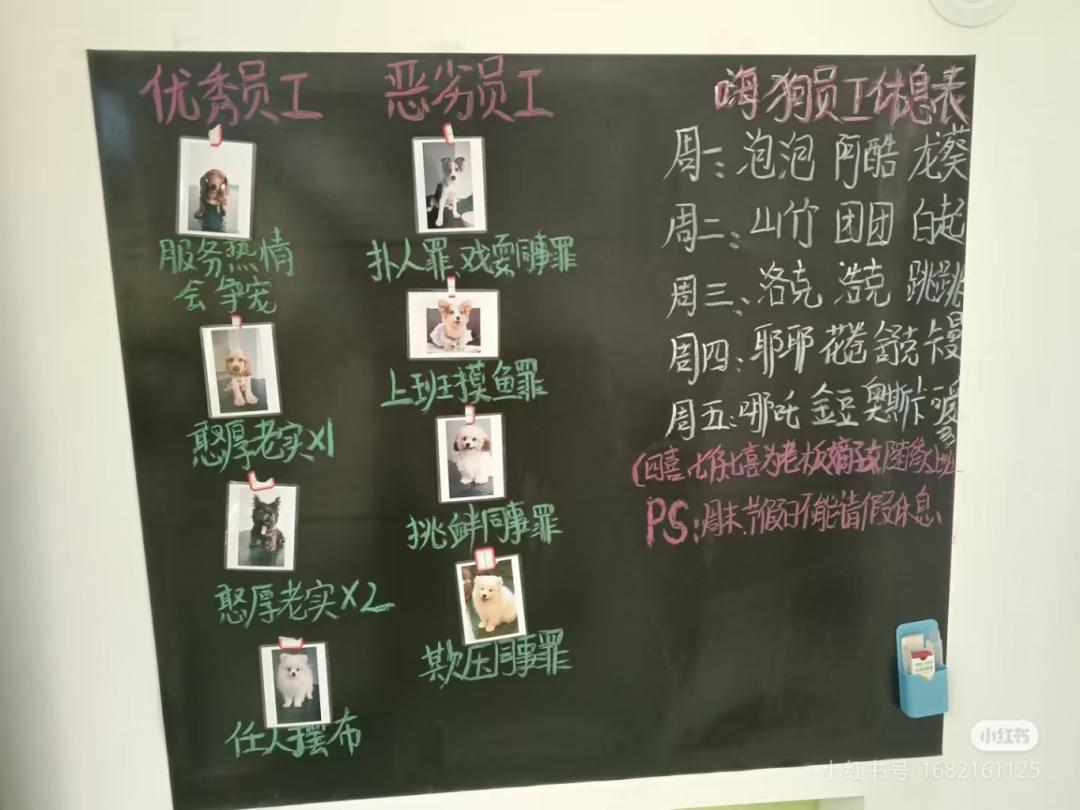 优秀员工
服务热情
会争宠
憨厚老实X1
憨厚老实X2
任人摆布
恶劣员工
扑人罪、戏耍同事罪
上班摸鱼罪
挑衅同事罪
欺压同事罪
嗨狗员工休息表
周一：泡泡 阿酷 龙葵
周二：山竹 团团 白起
周三、洛克 浩克 跳跳
周四：耶耶 花卷 舒克 卡曼
周五：哪吒 金豆 奥斯卡
(四喜、七仔、七喜为老板嫡子女,随缘上班
PS:周末、节假日不能请假休息、
小红书
小红书号: 1682161125